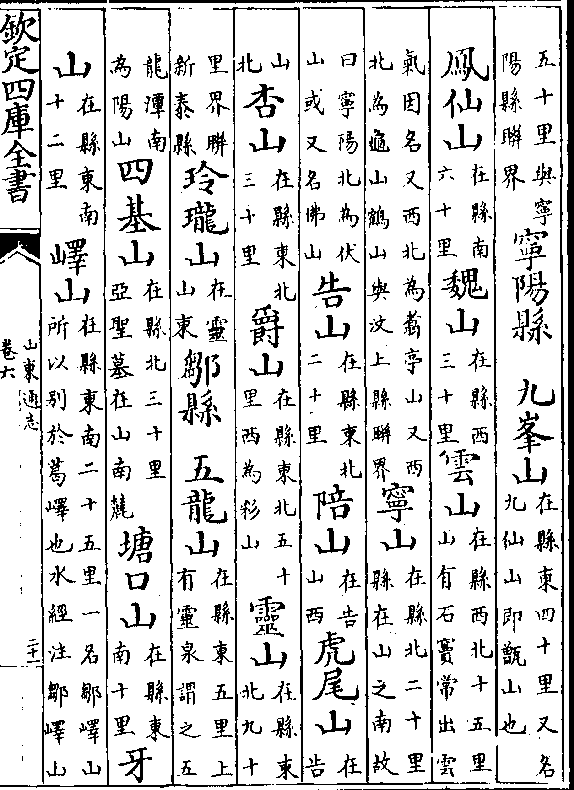 五十里與寧陽縣聯界寧陽縣　九峯山在縣東四十里又名九仙山即甑山也
鳳仙山在縣南六十里魏山在縣西三十里雲山在縣西北十五里山有石竇常出雲
氣因名又西北為亭山又西北為龜山鶴山與汶上縣聯界寧山在縣北二十里縣在山之南故
曰寧陽北為伏山或又名佛山告山在縣東北二十里陪山在告山西虎尾山在告
山北杏山在縣東北三十里爵山在縣東北五十里西為彩山靈山在縣東北九十
里界聯新泰縣玲瓏山在靈山東鄒縣　五龍山在縣東五里上有靈泉謂之五
龍潭南為陽山四基山在縣北三十里亞聖墓在山南麓塘口山在縣東南十里牙
山在縣東南十二里嶧山在縣東南二十五里一名鄒嶧山所以別於葛嶧也水經注鄒嶧山
欽定四庫全書
山東通志
卷六